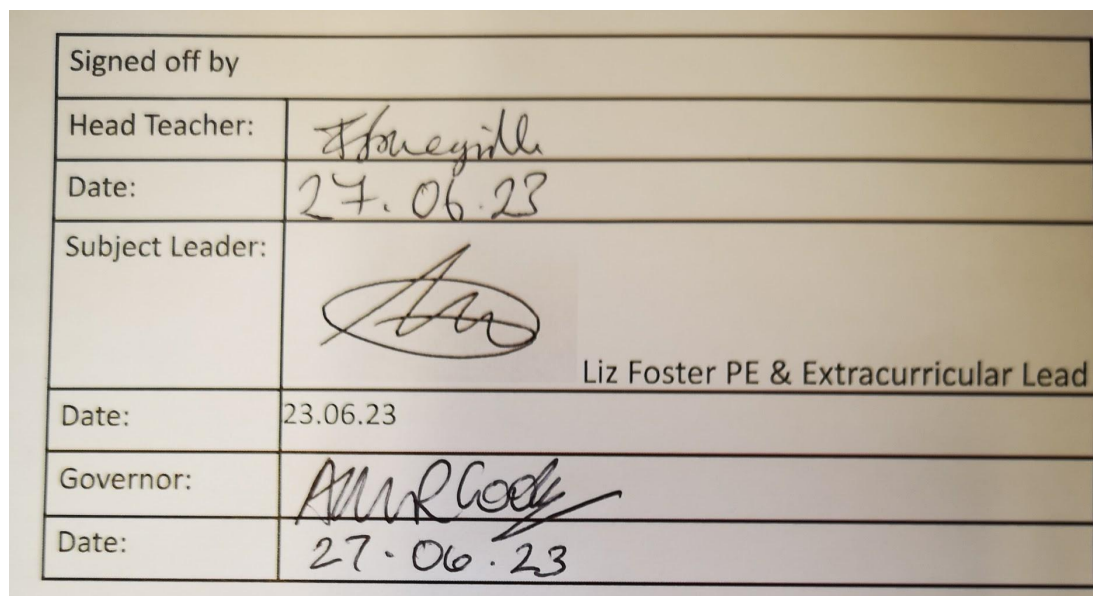 Signed off by
Head Teacher:
Date: 27.06.23
Subject Leader:
Liz Foster PE & Extracurricular Lead
Date: 23.06.23
Governor:
Date: 27.06.23